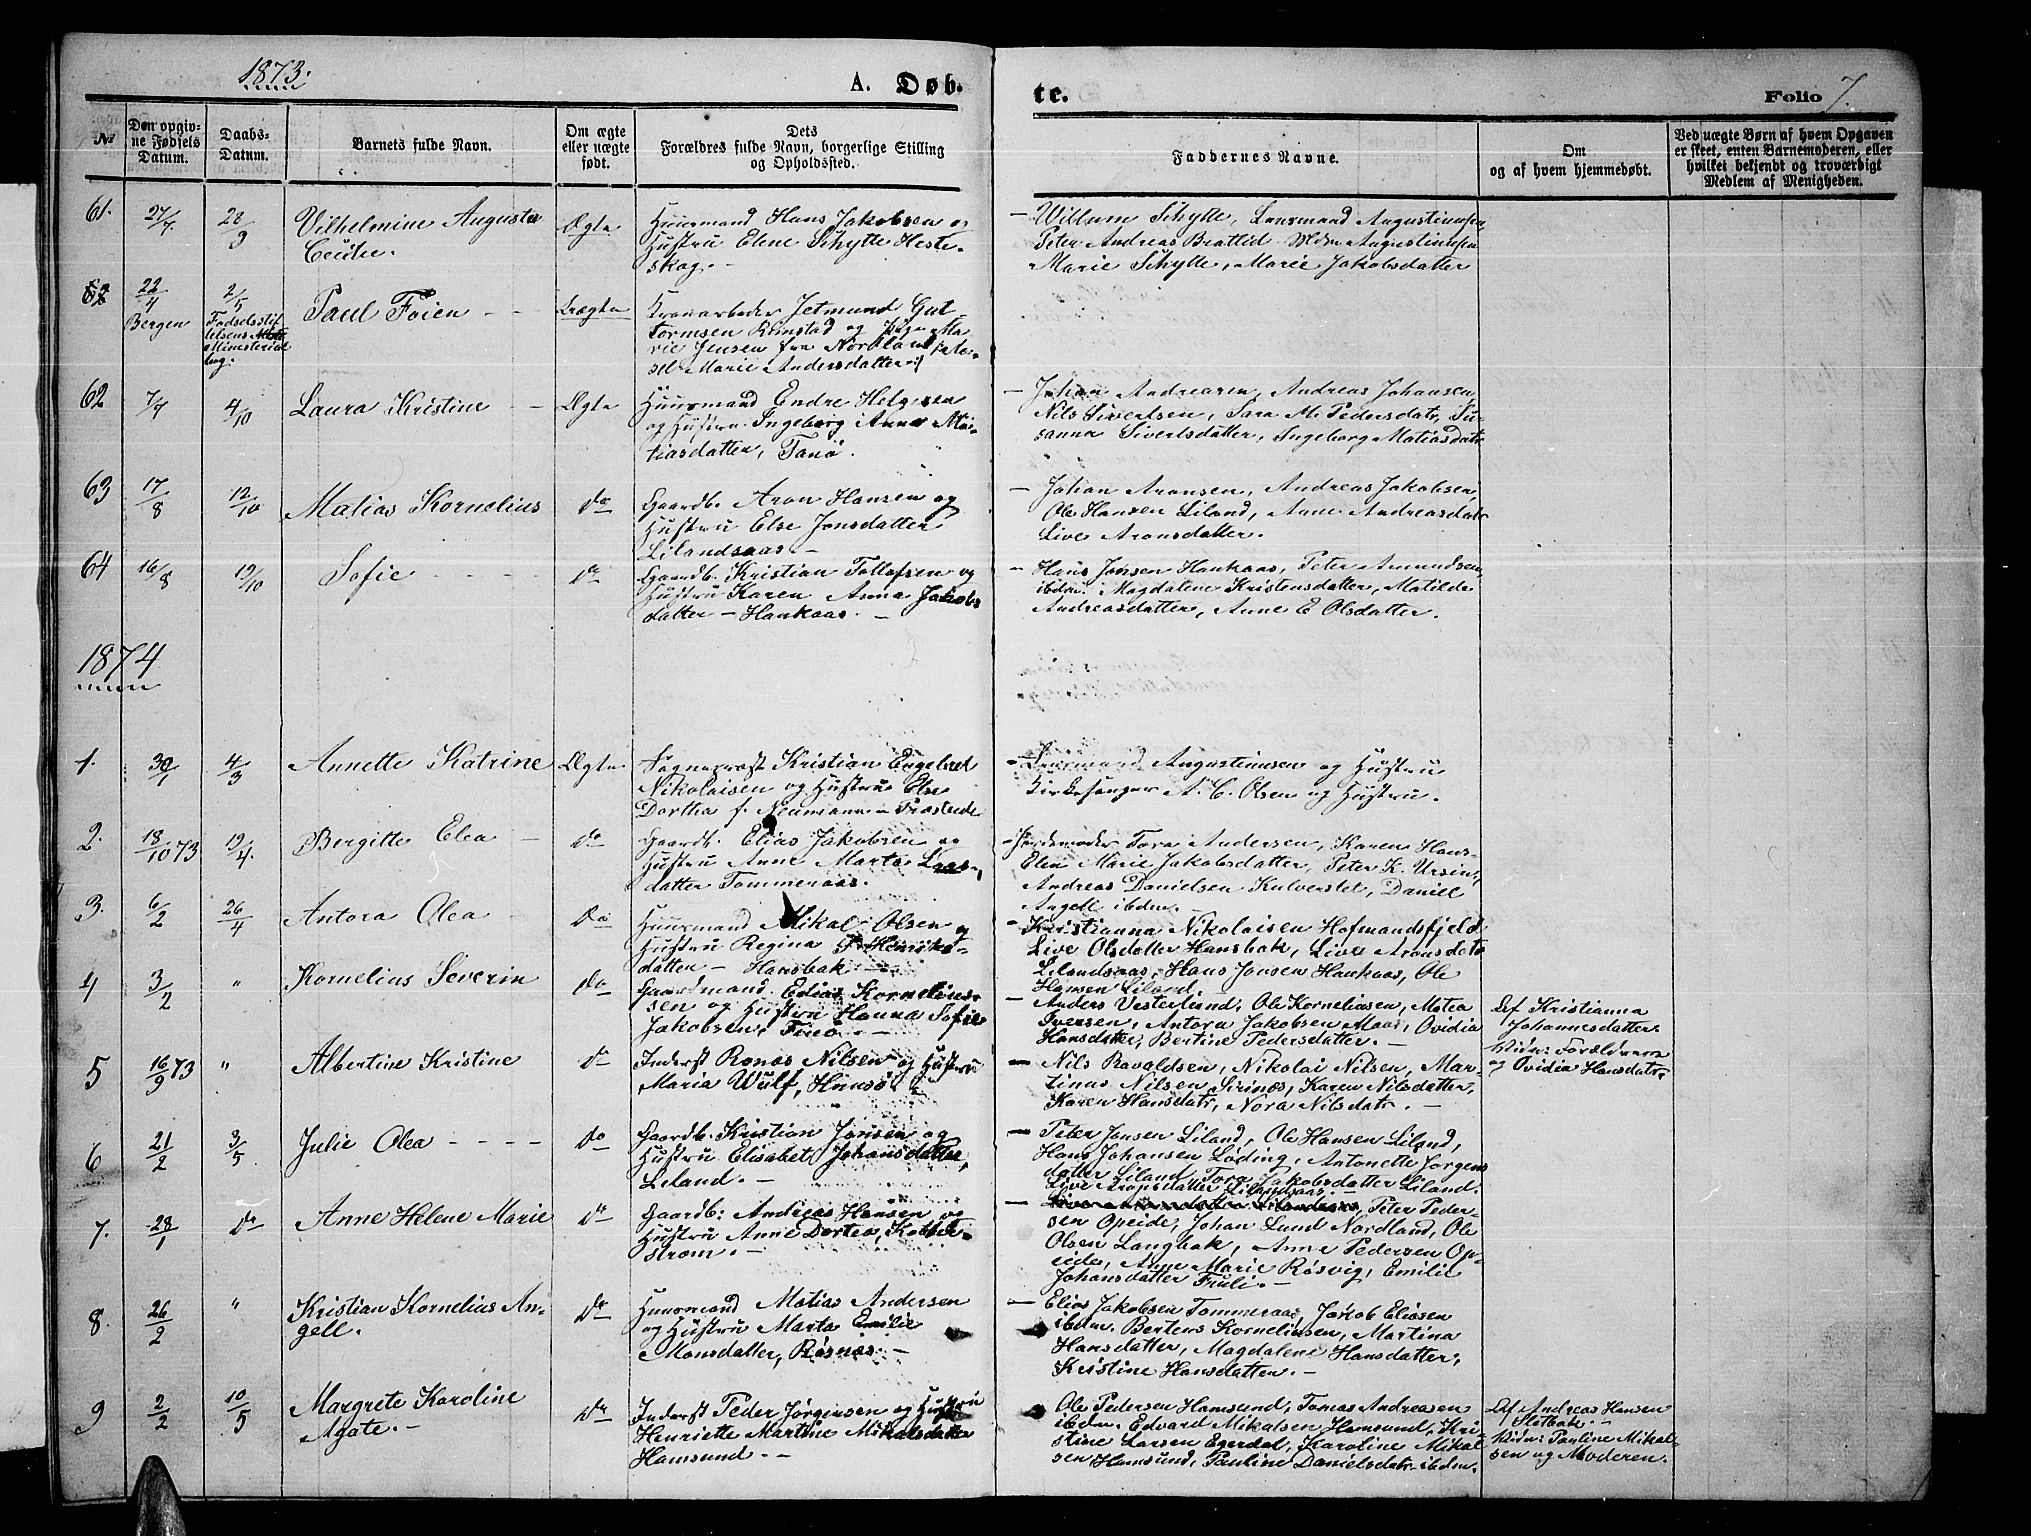 1873.
A. Døb-
te.
Folio 7.
№
Den opgiv-
ne Fødsels
Datum.
Daabs-
Datum.
Barnets fulde Navn.
Om ægte
eller uægte
født.
Dets
Forældres fulde Navn, borgerlige Stilling
og Opholdssted.
Faddernes Navne.
Om
og af hvem hjemmedøbt.
Ved uægte Børn af hvem Opgaven
er skeet, enten Barnemoderen, eller
hvilket bekjendt og troværdigt
Medlem af Menigheden.
61. 27/7 28/9 Vilhelmine Augusta
Cecilie.
Ægte
Huusmand Hans Jakobsen og
Hustru Elene Schytte Heste-
skog. -
- Villum Schytte, Lensmand Augustinussen,
Peter Andreas Brattlid. Mdm Augustinussen
Marie Schytte, Marie Jakobsdatter
22/4
Bergen
2/5
Fødselsstif-
telsens
Ministerial
bog.
Paul Foien - -
Uægte
Gut-
tormsen Rimstad og Pige Ma-
rie Jensen fra Nordland
Marie Andersdatter
62 7/7 4/10 Laura Kristine -
Ægte
Huusmand Endre Helgesen
og Hustru Ingeborg Anna Ma-
tiasdatter, Tanø.
- Johan Andreasen, Andreas Johansen,
Nils Sivertsen, Sara M. Pedersdatr, Su-
sanna Sivertsdatter, Ingeborg Matiasdatr
63 17/8 12/10 Matias Kornelius
Do
Gaardb. Aron Hansen og
Hustru Else Jonsdatter
Lilandsaas -
- Johan Aronsen, Andreas Jakobsen,
Ole Hansen Liland, Anne Andreasdatr
Live Aronsdatter.
64 16/8 19/10 Sofie - - - -
Do
Gaardb. Kristian Tollofsen og
Hustru Karen Anna Jakobs
datter - Haukaas. -
- Hans Jonsen Haukaas, Peter Amundsen
ibdm. Magdalene Kristensdatter, Matilde
Andreasdatter, Anne E Olsdatter.
1874
1. 30/1 4/3 Annette Katrine
Ægte
Sognepræst Kristian Engebret
Nikolaisen og Hustru Else
Dorthea f. Neumann - Præsteide
- Lensmand Augustinusen og Hustru
Kirkesanger A. C. Olsen og Hustru.
2. 18/10 73 19/4. Bergitte Elea -
Do
Gaardb. Elias Jakobsen og
Hustru Anne Marta Lars-
datter Tommeraas.
- Jordemoder Tora Andersen, Karen Hans-
Elen Marie Jakobsdatter, Peter K. Ursin,
Andreas Danielsen Kulverstet, Daniel
Angell ibdm. -
3. 6/2 26/4 Antora Olea -
Do
Huusmand Mikal Olsen og
Hustru Regina Henriks-
datter - Hansbak -
- Kristianna Nikolaisen Hofmandsfjeld
Live Olsdatter Hansbak, Live Aronsdatr
Lilandsaas, Hans Jonsen Haukaas, Ole
Hansen Liland.
4 3/2 " Kornelius Severin
Do
Gaardmand Edias Kornelius-
sen og Hustru Hanna Sofie
Jakobsen, Finø. -
- Anders Vesterlund, Ole Korneliusen, Matea
Iversen, Antora Jakobsen Maas, Ovidia
Hansdatter, Bertine Pedersdatter. -
Af Kristianna
Johannesdatter.
Vidn: Forældrene
og Ovidia Hansdatr
5 16/9 73 " Albertine Kristine
Do
Inderst Ronas Nilsen og Hustru
Maria Wulf, Hunsø
- Nils Ravaldsen, Nikolai Nilsen, Mar-
tinus Nilsen Sirinæs, Karen Nilsdatter,
Karen Hansdatr, Nora Nilsdatr. -
6 21/2 3/5 Julie Olea - - - -
Do
Gaardb. Kristian Jonsen og
Hustru Elisabet Johansdatter,
Leland. -
- Peter Jonsen Liland, Ole Hansen Liland,
Hans Johansen Løding, Antonette Jørgens
datter Liland, Tora Jakobsdatter Liland.
Live Aronsdatter Lilandsaas. -
7. 28/1 Do Anne Helene Marie
Do
Gaardb: Andreas Hansen og
Hustru Anne Dortea, Kobbel-
strøm. -
- Live Aronsdatter Lilandsaas, Peter Peder-
sen Opeide, Johan Lund Nordland, Ole
Olsen Langbak, Anne Pedersen Op-
eide, Anne Marie Røsvig, Emilie
Johansdatter Fruli. -
8. 26/2 " Kristian Kornelius An-
gell.
Do
Huusmand Matias Andersen
og Hustru Marta Emilie
Monsdatter, Røsnæs. -
- Elias Jakobsen Tommeraas, Jakob Eliasen
ibdm. Bertens Korneliusen, Martina
Hansdatter, Magdalene Hansdatter,
Kristine Hansdatter. -
9 2/2 10/5 Margrete Karoline
Agate. -
Do
Inderst Peder Jørgensen og Hustru
Henriette Martine Mikalsdatter
Hamsund. -
- Ole Pedersen Hamsund, Tomas Andreasen
ibdm. Edvard Mikalsen Hamsund, Kri-
stine Larsen Egerdal, Karoline Mikal-
sen Hamsund, Pauline Danielsdatr ibdm.
Af Andreas Hansen
Sletbak. -
Vidn: Pauline Mikal-
sen og Moderen.